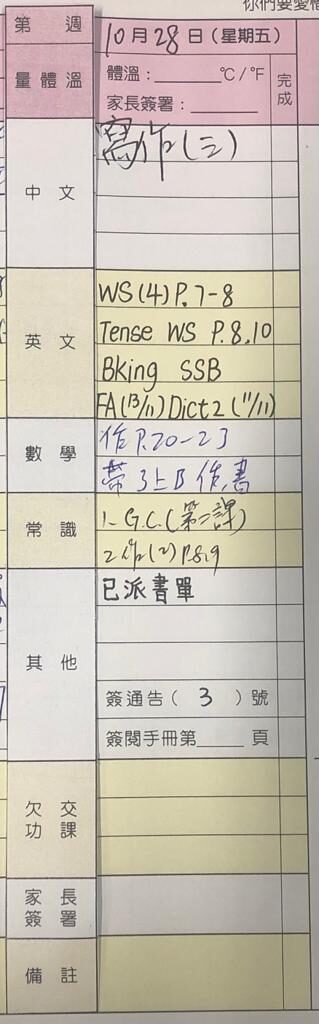 你們要愛惜
第 週
10月28日(星期五)
量體溫
體溫：______℃/℉
家長簽署：______
完成
中文
寫作(三)
英文
WS(4) P.7-8
Tense WS P.8,10
Bking SSB
FA(13/11) Dict2 (11/11)
數學
作P.20-23
帶3上B作書
常識
1. G.C.(第二課)
2. 作(2) P.8,9
其他
已派書單
簽通告( 3 )號
簽閱手冊第____頁
欠交功課
家長簽署
備註